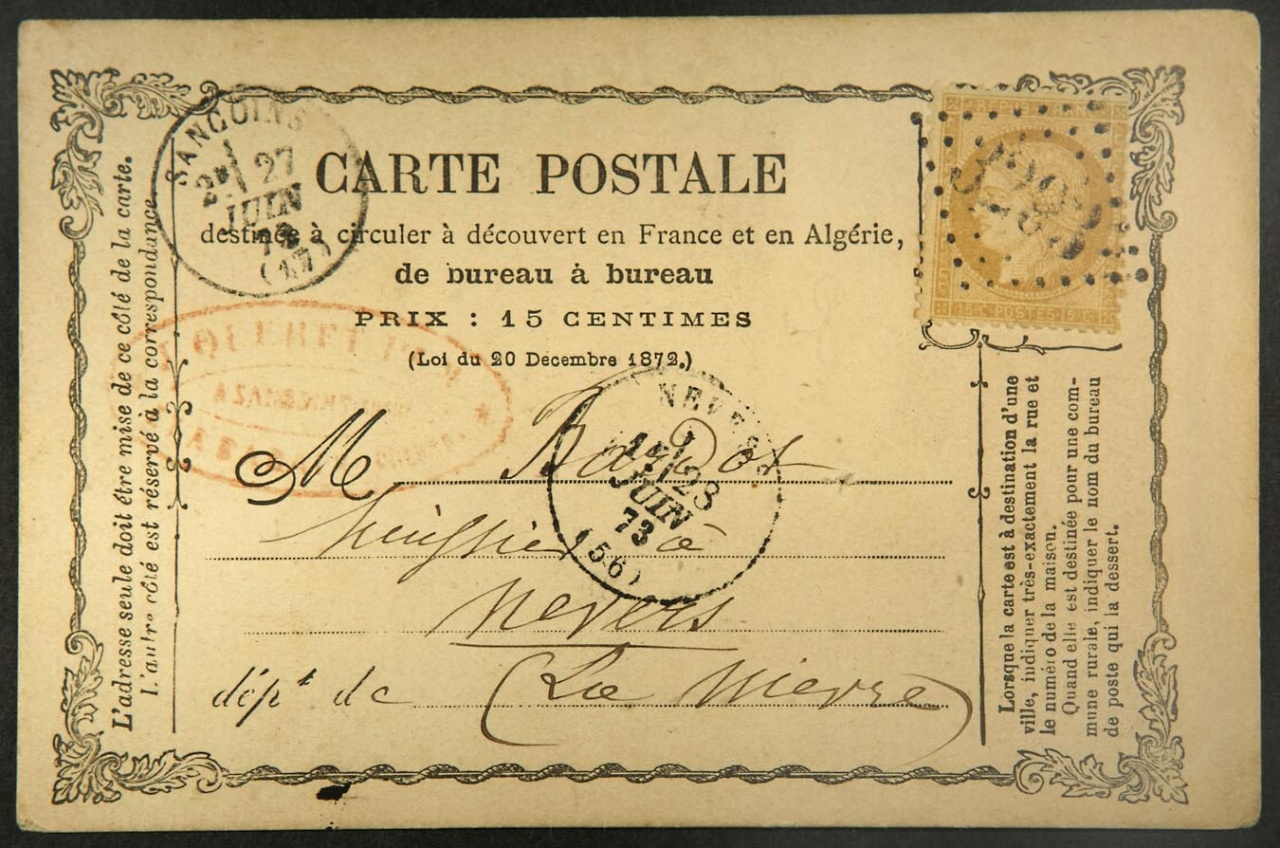 CARTE POSTALE
destinée à circuler à découvert en France et en Algérie,
de bureau à bureau
PRIX : 15 CENTIMES
(Loi du 20 Décembre 1872.)
SANCOINS
2e 27
JUIN
73
(17)
REPUB FRANC
3298
15 C POSTES 15 C
QUERET
A SANCOINS
NEVERS
1e 28
JUIN
73
(56)
M Bardot
huissier à
Nevers
dépt de (La Nievre)
L'adresse seule doit être mise de ce côté de la carte.
L'autre côté est réservé à la correspondance.
Lorsque la carte est à destination d'une
ville, indiquer très-exactement la rue et
le numéro de la maison.
Quand elle est destinée pour une com-
mune rurale, indiquer le nom du bureau
de poste qui la dessert.